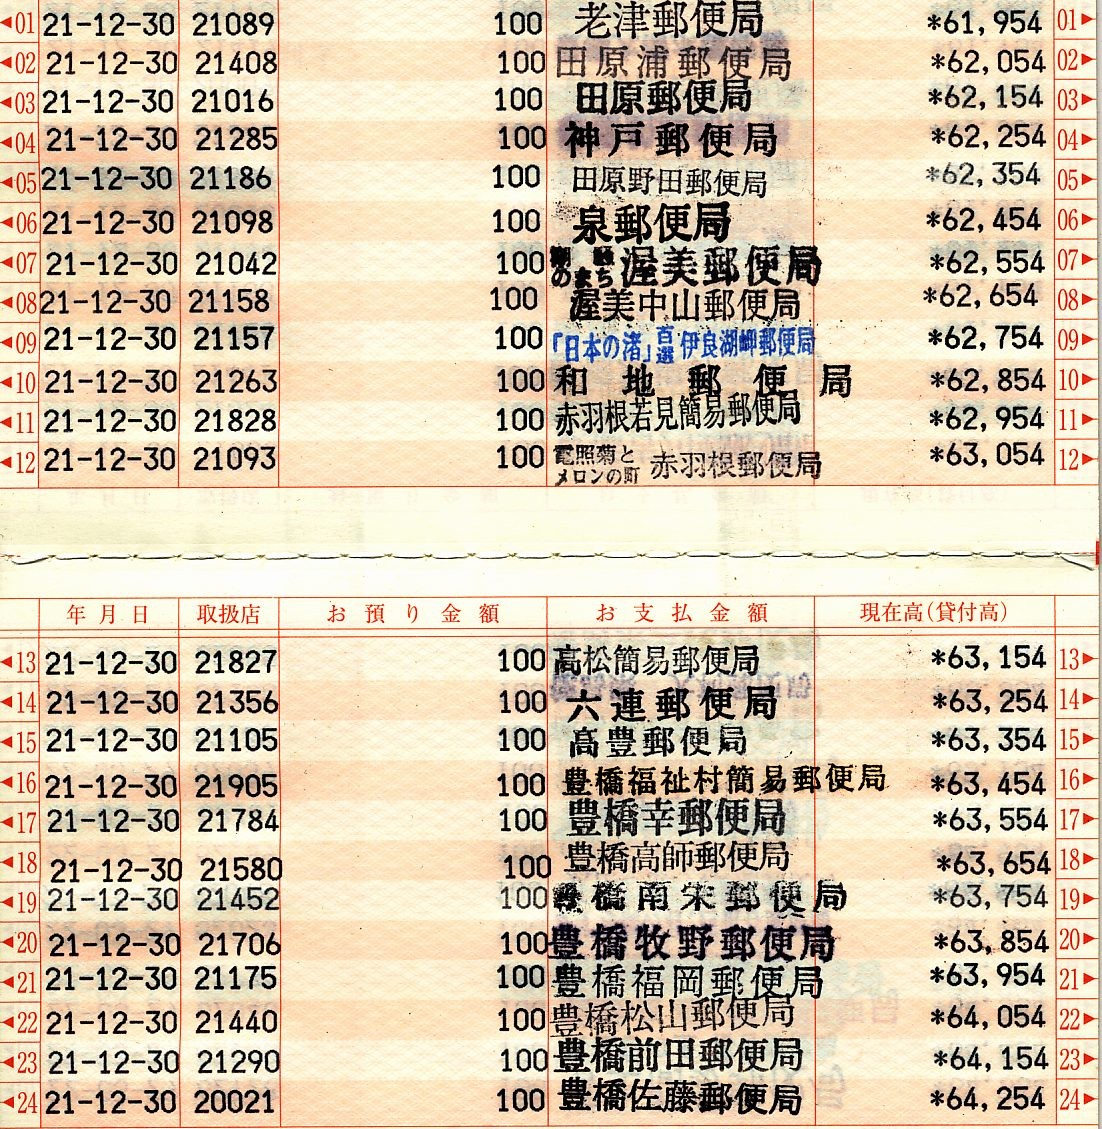 ◄01 21-12-30 21089 100 老津郵便局 *61,954 01►
◄02 21-12-30 21408 100 田原浦郵便局 *62,054 02►
◄03 21-12-30 21016 100 田原郵便局 *62,154 03►
◄04 21-12-30 21285 100 神戸郵便局 *62,254 04►
◄05 21-12-30 21186 100 田原野田郵便局 *62,354 05►
◄06 21-12-30 21098 100 泉郵便局 *62,454 06►
◄07 21-12-30 21042 100 のまち 渥美郵便局 *62,554 07►
◄08 21-12-30 21158 100 渥美中山郵便局 *62,654 08►
◄09 21-12-30 21157 100 「日本の渚」百選 伊良湖岬郵便局 *62,754 09►
◄10 21-12-30 21263 100 和地郵便局 *62,854 10►
◄11 21-12-30 21828 100 赤羽根若見簡易郵便局 *62,954 11►
◄12 21-12-30 21093 100 電照菊とメロンの町 赤羽根郵便局 *63,054 12►
年月日 取扱店 お預り金額 お支払金額 現在高(貸付高)
◄13 21-12-30 21827 100 高松簡易郵便局 *63,154 13►
◄14 21-12-30 21356 100 六連郵便局 *63,254 14►
◄15 21-12-30 21105 100 高豊郵便局 *63,354 15►
◄16 21-12-30 21905 100 豊橋福祉村簡易郵便局 *63,454 16►
◄17 21-12-30 21784 100 豊橋幸郵便局 *63,554 17►
◄18 21-12-30 21580 100 豊橋高師郵便局 *63,654 18►
◄19 21-12-30 21452 100 豊橋南栄郵便局 *63,754 19►
◄20 21-12-30 21706 100 豊橋牧野郵便局 *63,854 20►
◄21 21-12-30 21175 100 豊橋福岡郵便局 *63,954 21►
◄22 21-12-30 21440 100 豊橋松山郵便局 *64,054 22►
◄23 21-12-30 21290 100 豊橋前田郵便局 *64,154 23►
◄24 21-12-30 20021 100 豊橋佐藤郵便局 *64,254 24►